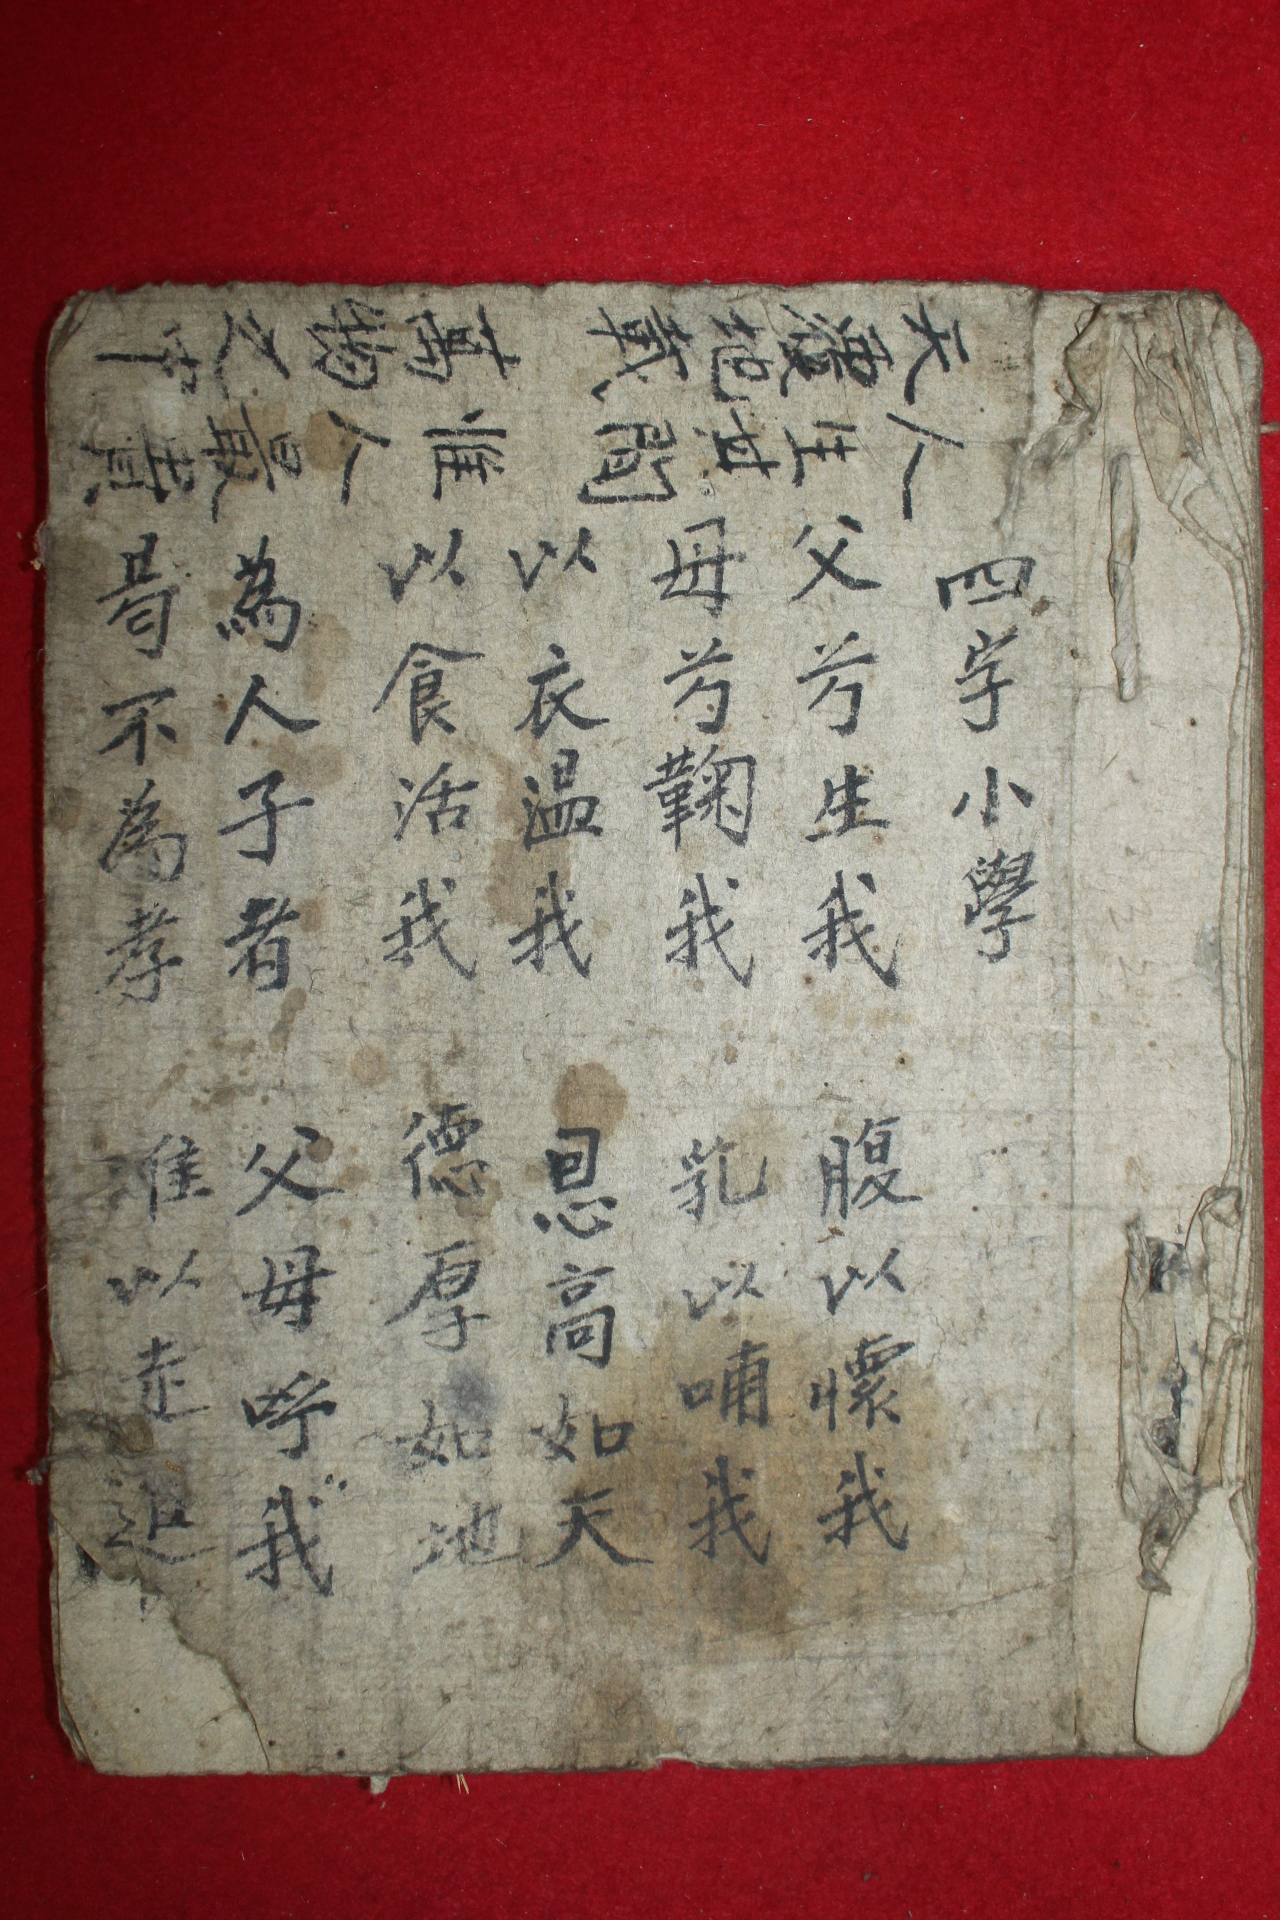 天覆地載 萬物之中
人生世間 惟人最貴
四字小學
父兮生我 腹以懷我
母兮鞠我 乳以哺我
以衣温我 恩高如天
以食活我 德厚如地
為人子者 父母呼我
曷不為孝 唯以走